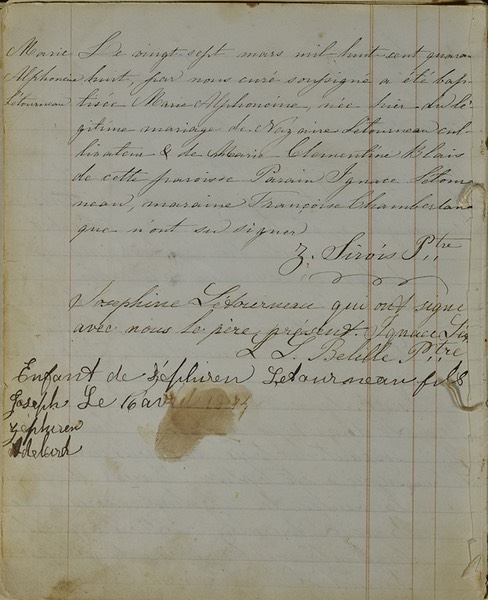 Marie
Alphoncine
Letourneau
Le vingt sept mars mil huit cent quaran
huit, par nous curé soussigné a été bap
tisée Marie Alphoncine, née hier du lé
gitime mariage de Nazaire Létourneau cul
tivateur & de Marie Clementine Blais
de cette paroisse Parain Ignace Létour
neau, maraine Françoise Chamberlan
que n'ont su signer
Z. Sirois Ptre
Josephine Letourneau qui ont signé
avec nous le père présent. Ignace
L. L. Belisle Ptre
Enfant de Zéphiren Letourneau fils
Joseph
Zephiren
Adelard
Le